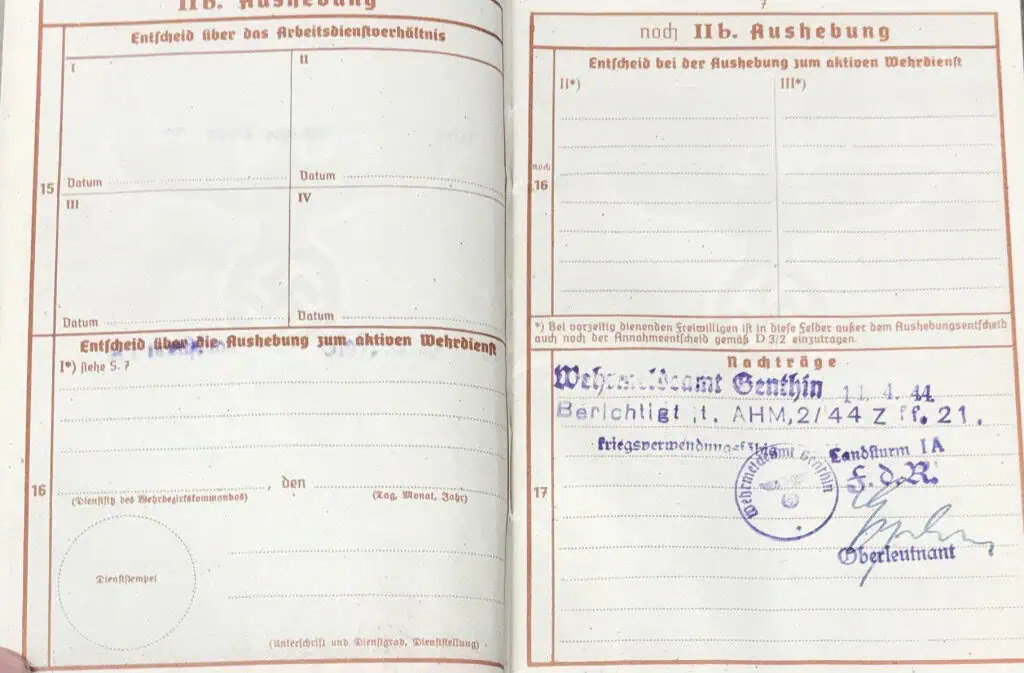 IIb. Aushebung
Entscheid über das Arbeitsdienstverhältnis
I
II
Datum
Datum
15
III
IV
Datum
Datum
Entscheid über die Aushebung zum aktiven Wehrdienst
I*) siehe S. 7
16
, den
(Dienstsitz des Wehrbezirkskommandos)
(Tag, Monat, Jahr)
Dienststempel
(Unterschrift und Dienstgrad, Dienststellung)
7
noch IIb. Aushebung
Entscheid bei der Aushebung zum aktiven Wehrdienst
II*)
III*)
noch
16
*) Bei vorzeitig dienenden Freiwilligen ist in diese Felder außer dem Aushebungsentscheid
auch noch der Annahmeentscheid gemäß D 3/2 einzutragen.
Nachträge
Wehrmeldeamt Genthin 11. 4. 44
Berichtigt lt. AHM, 2/44 Z ff. 21.
kriegsverwendungsfähig Landsturm IA
Wehrmeldeamt Genthin
F. d. R.
17
Oberleutnant